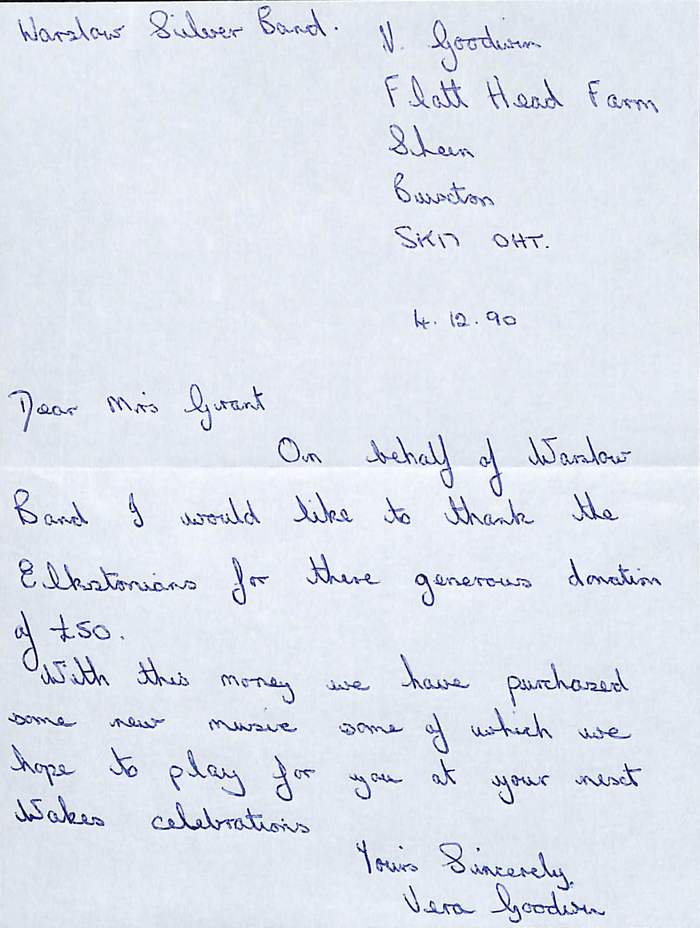 Warslow Silver Band.
V. Goodwin
Flatt Head Farm
Sheen
Buxton
SK17 0HT.
4.12.90
Dear Mrs Grant
On behalf of Warslow
Band I would like to thank the
Elkstonians for there generous donation
of £50.
With this money we have purchased
some new music some of which we
hope to play for you at your next
Wakes celebrations
Yours Sincerely,
Vera Goodwin